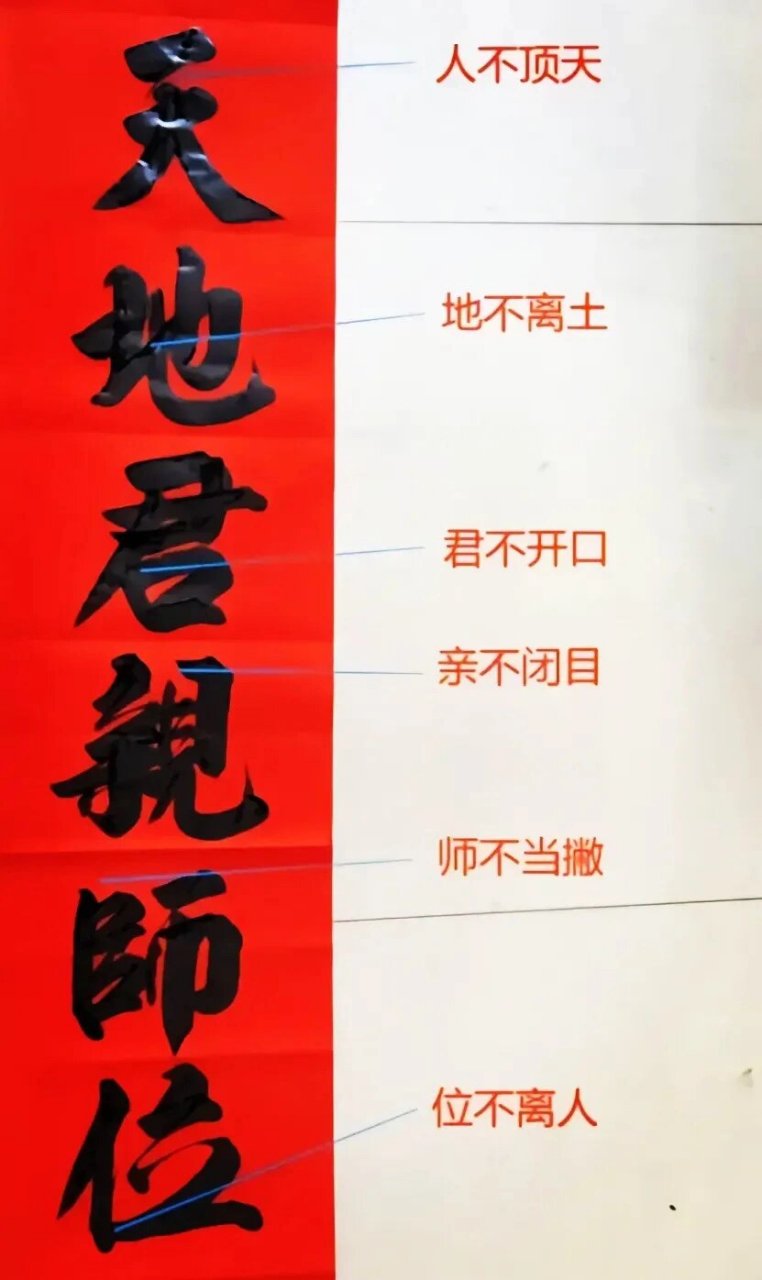 天地君親師位
人不顶天
地不离土
君不开口
亲不闭目
师不当撇
位不离人